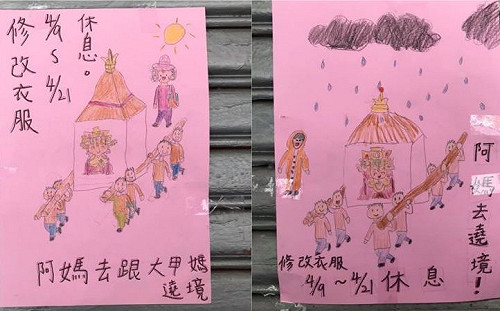 修改衣服
4/9
~
4/21
休息。
阿媽去跟大甲媽
遶境
阿媽去遶境!
修改衣服
4/9~4/21休息